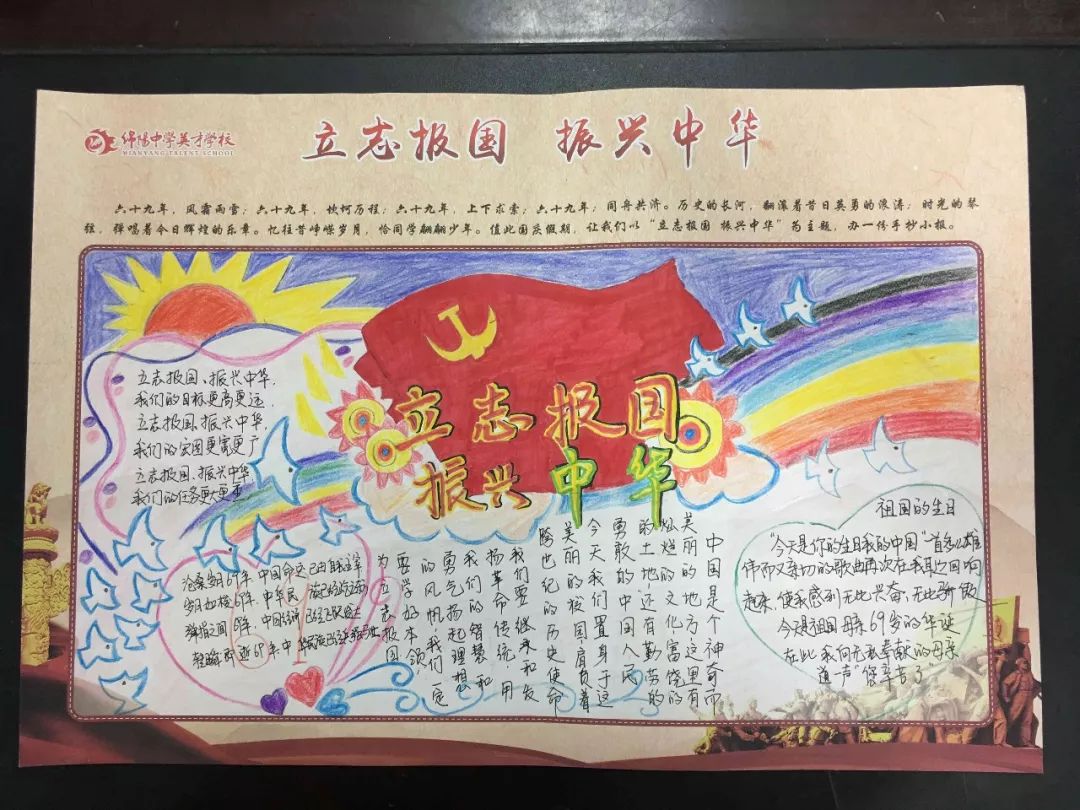 绵阳中学英才学校
MIANYANG TALENT SCHOOL
立志报国 振兴中华
六十九年，风霜雨雪；六十九年，坎坷历程；六十九年，上下求索；六十九年，同舟共济。历史的长河，翻滚着昔日英勇的浪涛；时光的琴
弦，弹唱着今日辉煌的乐章。忆往昔峥嵘岁月，恰同学翩翩少年。值此国庆假期，让我们以“立志报国 振兴中华”为主题，办一份手抄小报。
立志报国
振兴中华
立志报国、振兴中华，
我们的目标更高更远
立志报国、振兴中华，
我们的宏图更宽更广
立志报国、振兴中华
我们的任务更大更重
沧桑岁月69年，中国命运已由我主宰
岁月如梭69年，中华民族已经
弹指之间69年，中国
69年中华民族已
中国是个神奇而
美丽的地方这里有
灿烂的文化富饶的
土地还有勤劳的
勇敢的中国人而
今天我们置身于这
美丽的校园肩负着
跨世纪的历史使命
我们要继承和发
扬革命传统，用
我们的智慧和
勇气扬起理想
的风帆我们一定
要学好本领
为立志报国
祖国的生日
“今天是你的生日我的中国”首多么雄
伟而又亲切的歌曲再次在我耳边回响
起来，使我感到无比兴奋，无比骄傲
今天是祖国母亲69岁的华诞
在此我向无私奉献的母亲
道一声“您辛苦了